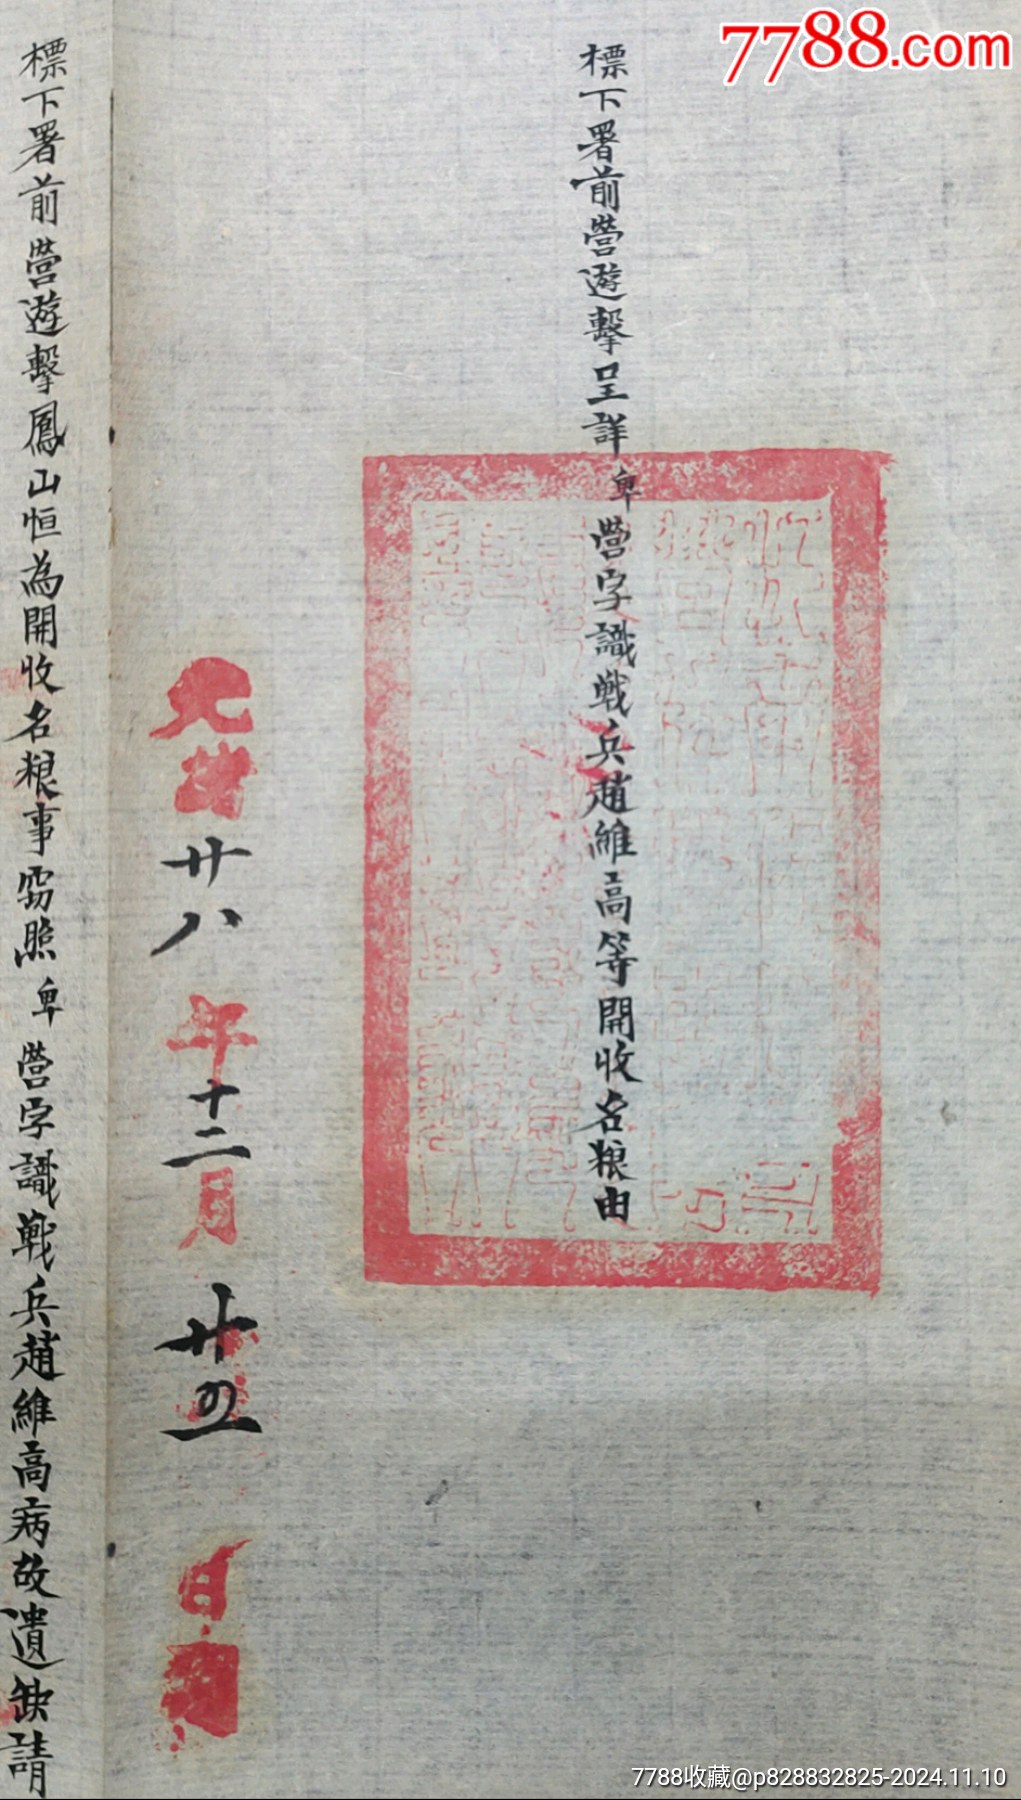 7788.com
標下署前營遊擊呈詳卑營字識戰兵趙維高等開收名粮由
光緒廿八年十二月廿四日
標下署前營遊擊鳳山恒為開收名粮事窃照卑營字識戰兵趙維高病故遺缺請
7788收藏@p828832825-2024.11.10